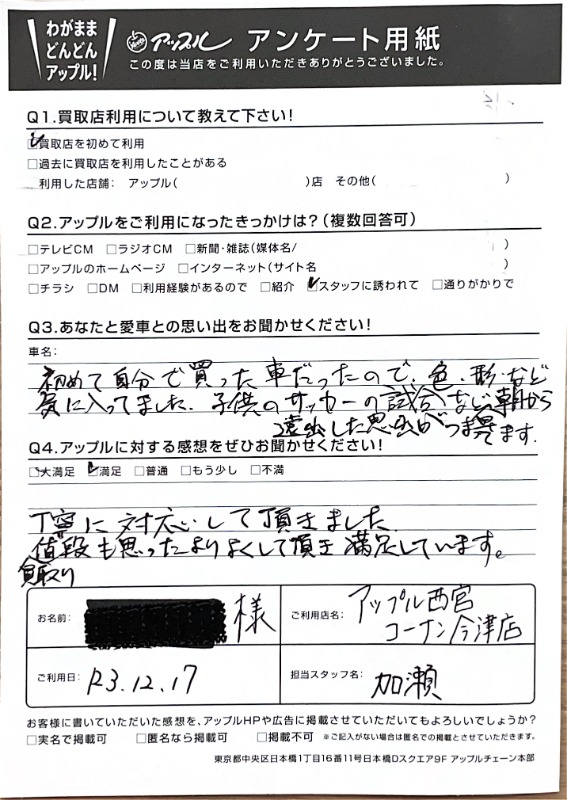 わがまま
どんどん
アップル!
アップル アンケート用紙
この度は当店をご利用いただきありがとうございました。
Q1.買取店利用について教えて下さい!
☑買取店を初めて利用
□過去に買取店を利用したことがある
利用した店舗: アップル( )店 その他( )
Q2.アップルをご利用になったきっかけは?(複数回答可)
□テレビCM □ラジオCM □新聞・雑誌(媒体名/ )
□アップルのホームページ □インターネット(サイト名 )
□チラシ □DM □利用経験があるので □紹介 ☑スタッフに誘われて □通りがかりで
Q3.あなたと愛車との思い出をお聞かせください!
車名:
初めて自分で買った車だったので、色・形など
気に入ってました。子供のサッカーの試合など朝から
遠出した思い出がつまってます。
Q4.アップルに対する感想をぜひお聞かせください!
□大満足 ☑満足 □普通 □もう少し □不満
丁寧に対応して頂きました
買取り値段も思ったよりよくして頂き満足しています。
お名前: 様
ご利用店名: アップル西宮
コーナン今津店
ご利用日: R3.12.17
担当スタッフ名: 加瀬
お客様に書いていただいた感想を、アップルHPや広告に掲載させていただいてもよろしいでしょうか?
□実名で掲載可 □匿名なら掲載可 □掲載不可 ※ご記入がない場合は匿名での掲載とさせていただきます。
東京都中央区日本橋1丁目16番11号日本橋Dスクエア9F アップルチェーン本部